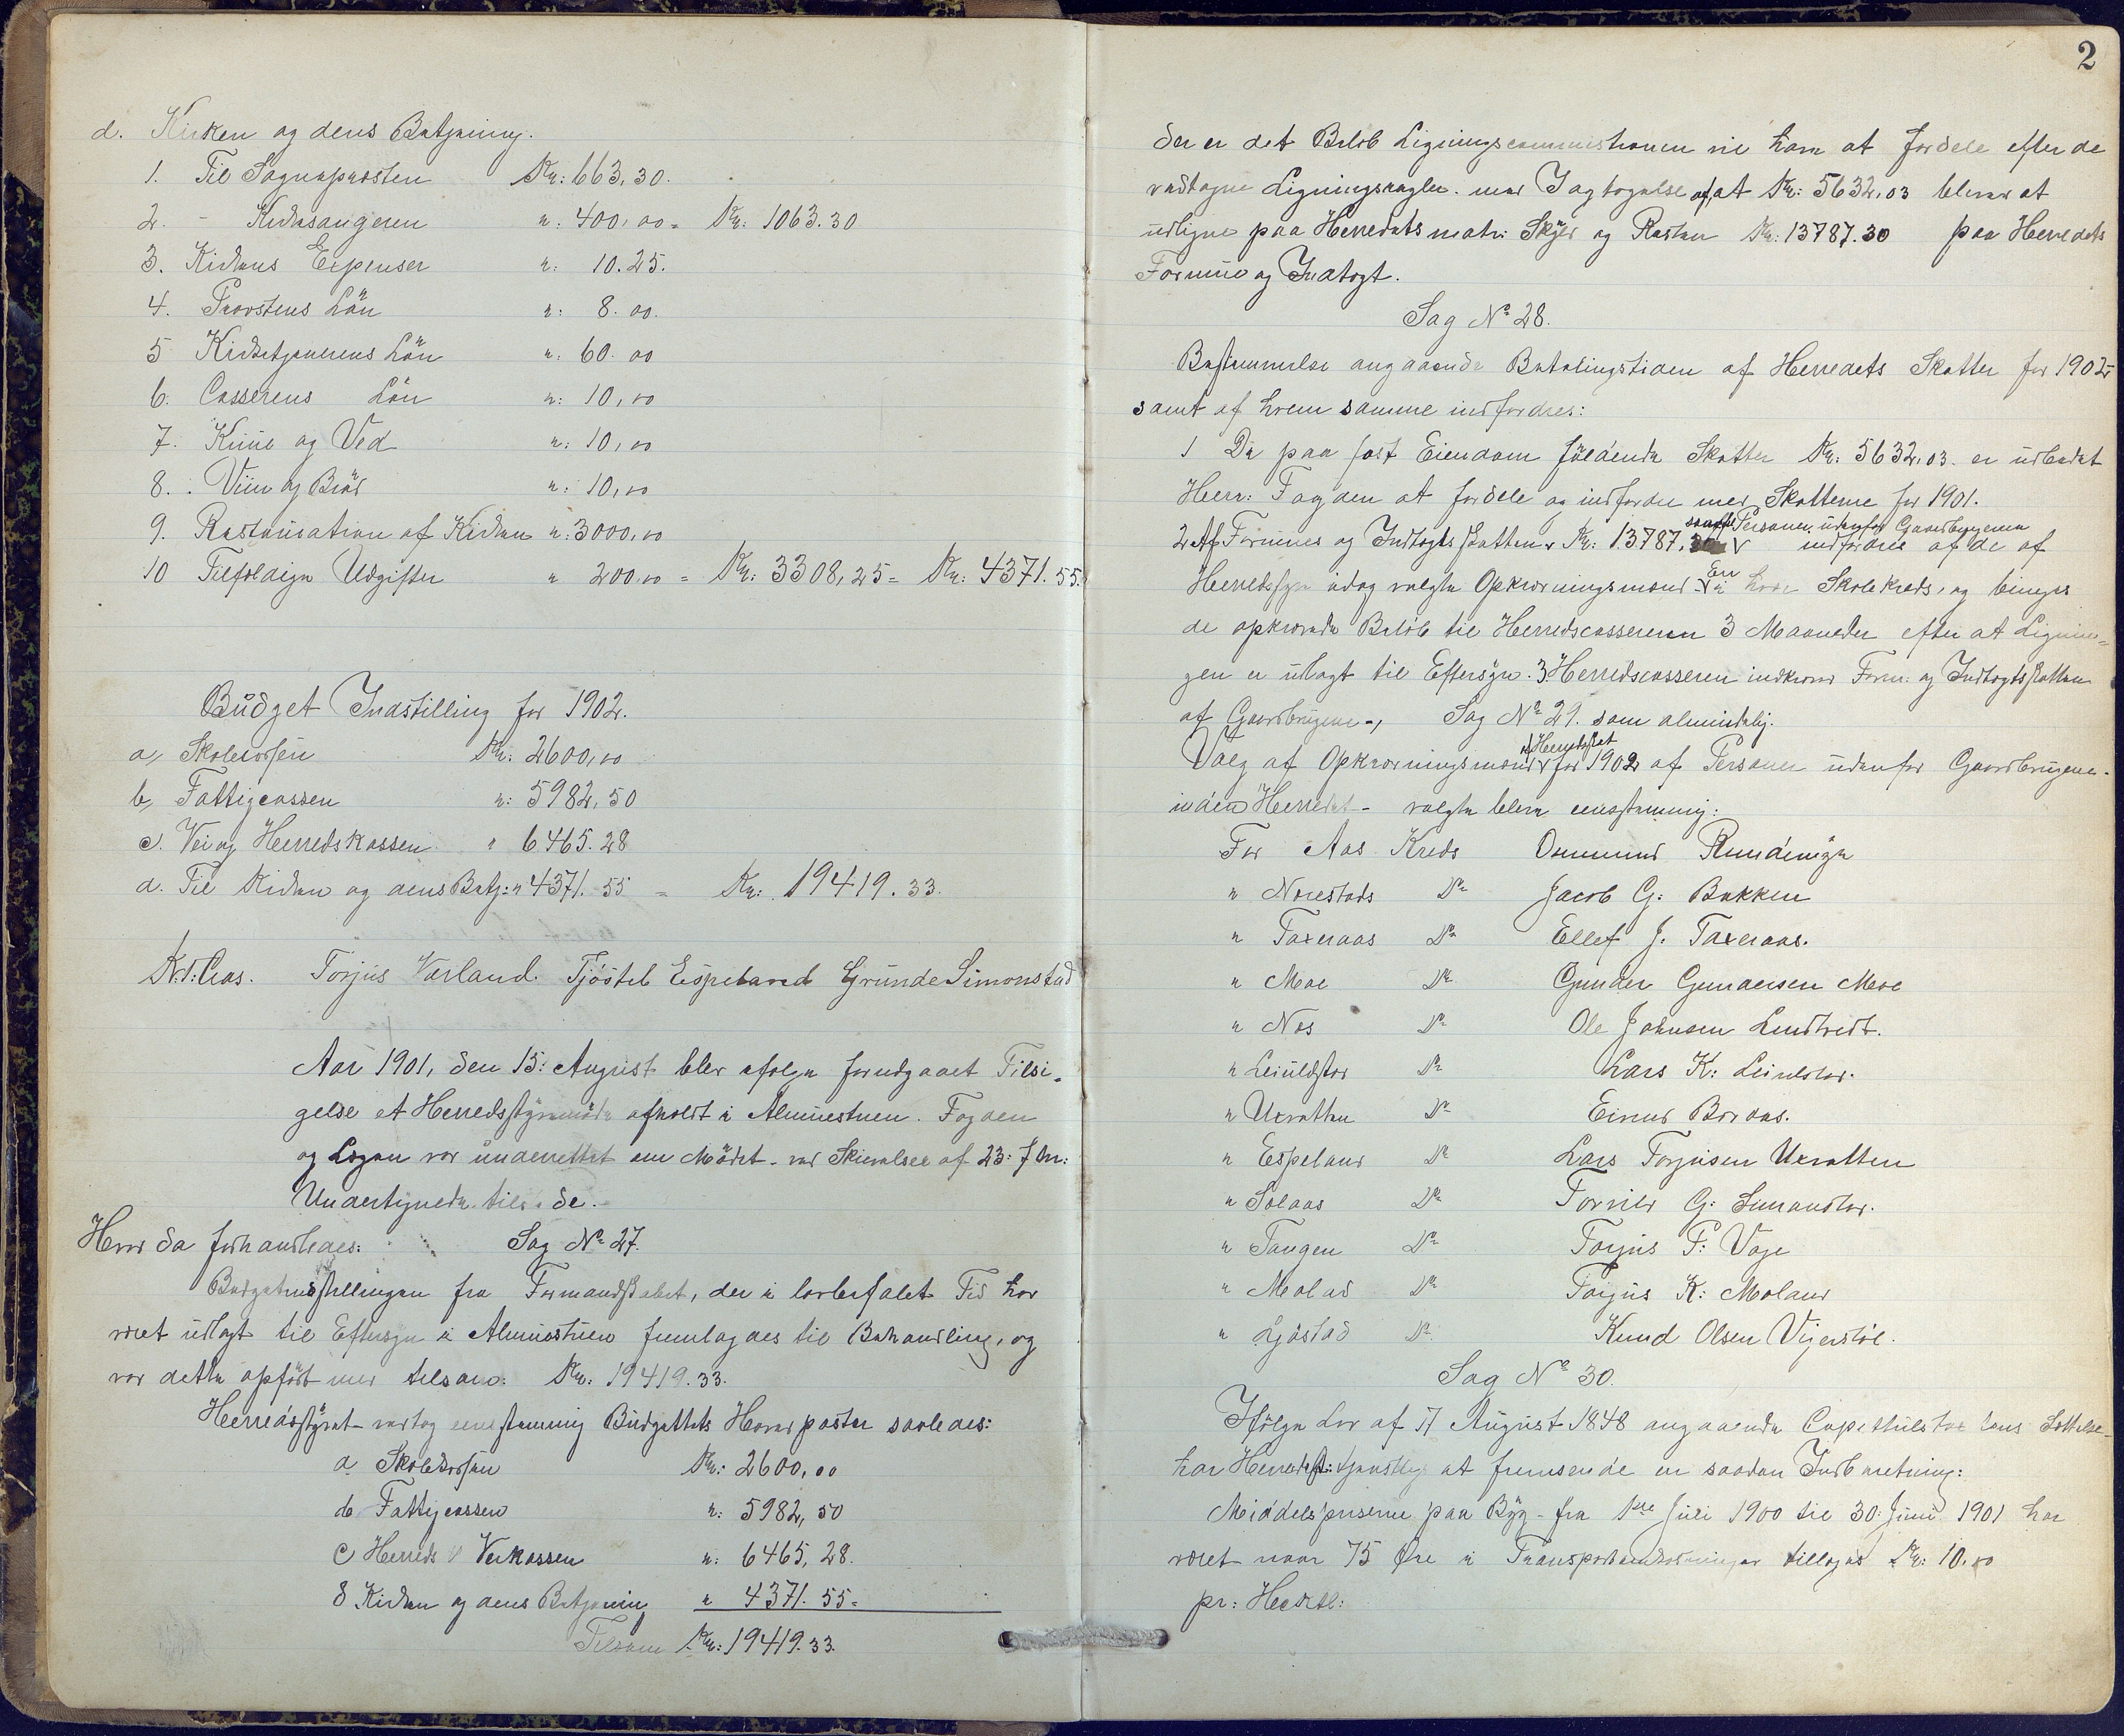 d. Kirken og dens Betjening.
1. Til Sognepresten Kr: 663,30.
2. - Kirkesangeren ": 400,00 = Kr: 1063.30
3. Kirkens Expenser ": 10.25.
4. Provstens Lön ": 8.00.
5 Kirketjenerens Lön ": 60.00
6. Casserens Lön ": 10,00
7. Kiul og Ved ": 10,00
8. Viin og Bröd ": 10,00
9. Restauration af Kirken ": 3000,00
10 Tilfeldige Udgifter " 200.00 = Kr: 3308,25 = Kr: 4371.55.
Budget Indstilling for 1902.
a, Skolecassen Kr: 2600,00
b, Fattigcassen ": 5982,50
c. Vei og Herredskassen " 6465.28
d. Til Kirken og dens Betj: " 4371.55 = Kr: 19419.33.
Kr: T: Aas. Torjus Værland. Tjöstel Espeland Grunde Simonstad
Aar 1901, den 15: August blev ifølge forudgaaet Tilsi-
gelse et Herredsstyremöde afholdt i Almuestuen. Fogden
og Legen var underrettet om Mödet ved Skrivelse af 23: f.M:
Undertegnede tilstede.
Hvor da forhandledes: Sag No 27.
Budgetindstillingen fra Formandskabet, der i lovbefalet Tid har
været udlagt til Eftersyn i Almuestuen fremlagdes til Behandling, og
var dette opfört med tilsam: Kr: 19419.33.
Herredsstyret vedtog eenstemmig Budgettets Hovedposter saaledes:
a Skolecassen Kr: 2600,00
b Fattigcassen ": 5982,50
c Herreds & Veikassen ": 6465,28.
d Kirken og dens Betjening " 4371.55 =
Tilsam Kr: 19419.33.
2
der er det Belöb Ligningscommissionen vil have at fordele efter de
vedtagne Ligningsregler med Iagtagelse af, at Kr: 5632,03 bliver at
udligne paa Herredets matr: Skyld og Resten Kr: 13787.30 paa Herredets
Formue og Indtægt.
Sag No 28.
Bestemmelse angaaende Betalingstiden af Herredets Skatter for 1902
samt af hvem samme indfordres:
1 De paa fast Eiendom faldende Skatter Kr: 5632,03 er udbedet
Herr: Fogden at fordele og indfordre med Skatterne for 1901.
samtl. Personer udenfor Gaardbrugerne
2 Af Formues og Indtægtsskatten Kr: 13787, indfordres af de af
Herredsstyre idag valgte Opkrævningsmænd En i hver Skolekreds, og bringes
de opkrævede Belöb til Herredscasseren 3 Maaneder efter at Lignin-
gen er udlagt til Eftersyn. 3. Herredscasseren indkræver Form: og Indtægtsskatten
af Gaardbrugerne, Sag No 29. som almindelig.
af Herredsskat
Valg af Opkrævningsmænd for 1902 af Personer udenfor Gaardbrugerne
inden Herredet valgte blev eenstemmig:
For Aas Kreds Osmund
" Nærestads Do Jacob G: Bakken
" Taxeraas Do Ellef J. Taxeraas.
" Moe Do Gunder Gundersen Moe
" Næs Do Ole Johnsen Lindtveit.
" Leiulfstad Do Lars K: Leiulstad.
" Uxvatten Do Einus Boraas.
" Espeland Do Lars Torjusen Uxvatten
" Solaas Do G: Simonstad.
" Tangen Do Torjus P: Vaje
" Moland Do Torjus K: Moland
" Ljöstad Do Knud Olsen Vigerstöl.
Sag No 30.
Ifölge Lov af 17 August 1848 angaaende Capiteltaxtens Sættelse
har Herredsst: at fremsende en saadan Indberetning:
Middelspriserne paa Byg fra 1ste Juli 1900 til 30: Juni 1901 har
været naar 75 Øre i Transportomkostninger tillæges Kr: 10.00
pr: Hectl: